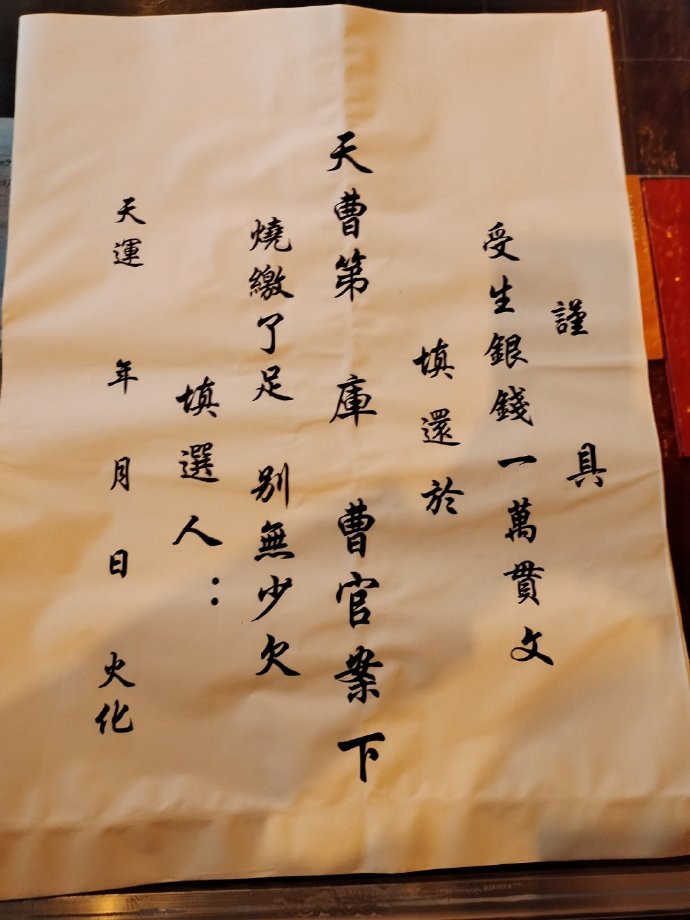 謹具
受生銀錢一萬貫文
填還於
天曹第 庫 曹官案下
燒繳了足 別無少欠
填選人：
天運 年 月 日 火化